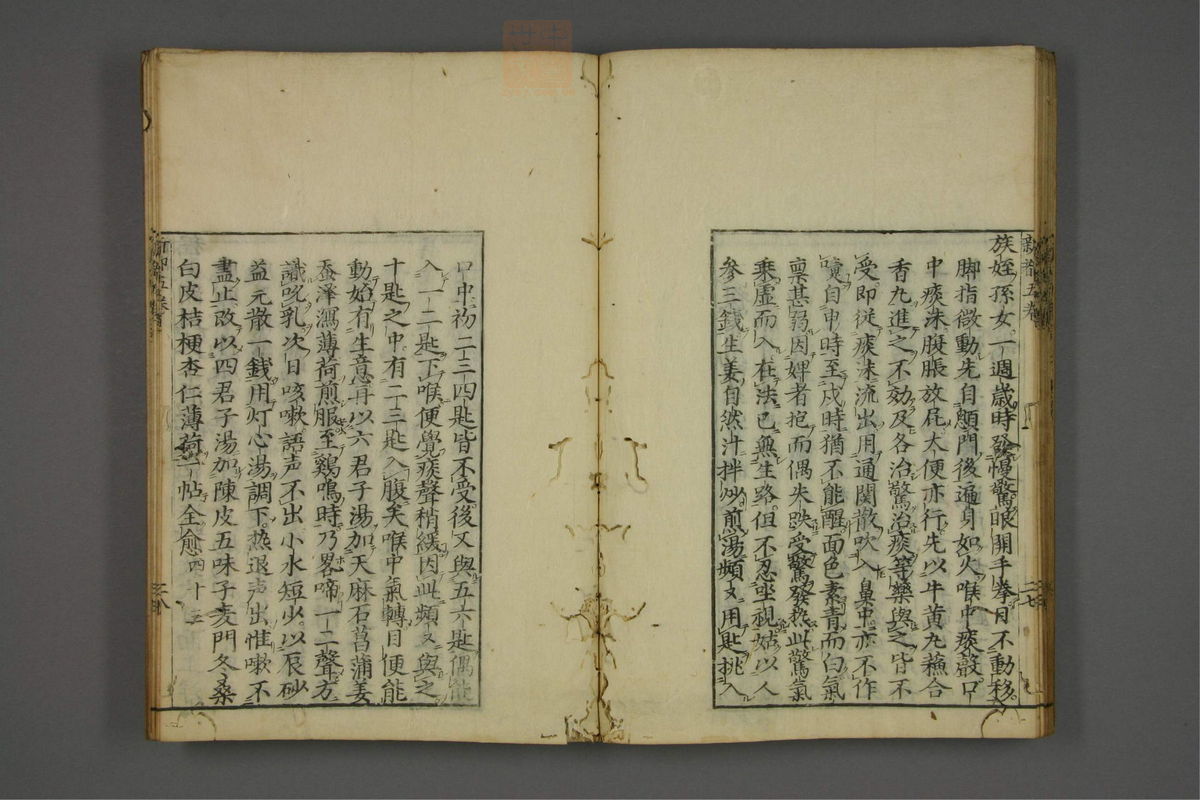 族姪孫女一週歳時發慢驚眼開手拳目不動移
脚指微動先自顖門後遍身如火喉中痰聲口
中痰沫腹脹放屁大便亦行先以牛黄丸蘓合
香丸進之不効及各治驚治痰等藥與之皆不
受即従痰沫流出用通関散吹入鼻中亦不作
嚏自申時至戌時猶不能醒面色素青而白氣
禀甚弱因婢者抱而偶失跌受驚發热此驚氣
乗虚而入在法已無生路但不忍坐視姑以人
参三錢生姜自然汁拌炒煎湯頻又用匙挑入
口中初二三四匙皆不受後又與五六匙偶能
入一二匙下喉便覺痰聲稍緩因此頻又與之
十匙之中有二三匙入腹矣喉中氣轉目便能
動始有生意再以六君子湯加天麻石菖蒲姜
蚕泽瀉薄荷煎服至鷄鳴時乃畧啼一二聲方
識吮乳次日咳嗽語声不出小水短少以辰砂
益元散一錢用灯心湯調下热退声出惟嗽不
盡止改以四君子湯加陳皮五味子麦門冬桑
白皮桔梗杏仁薄荷一帖全愈四十三